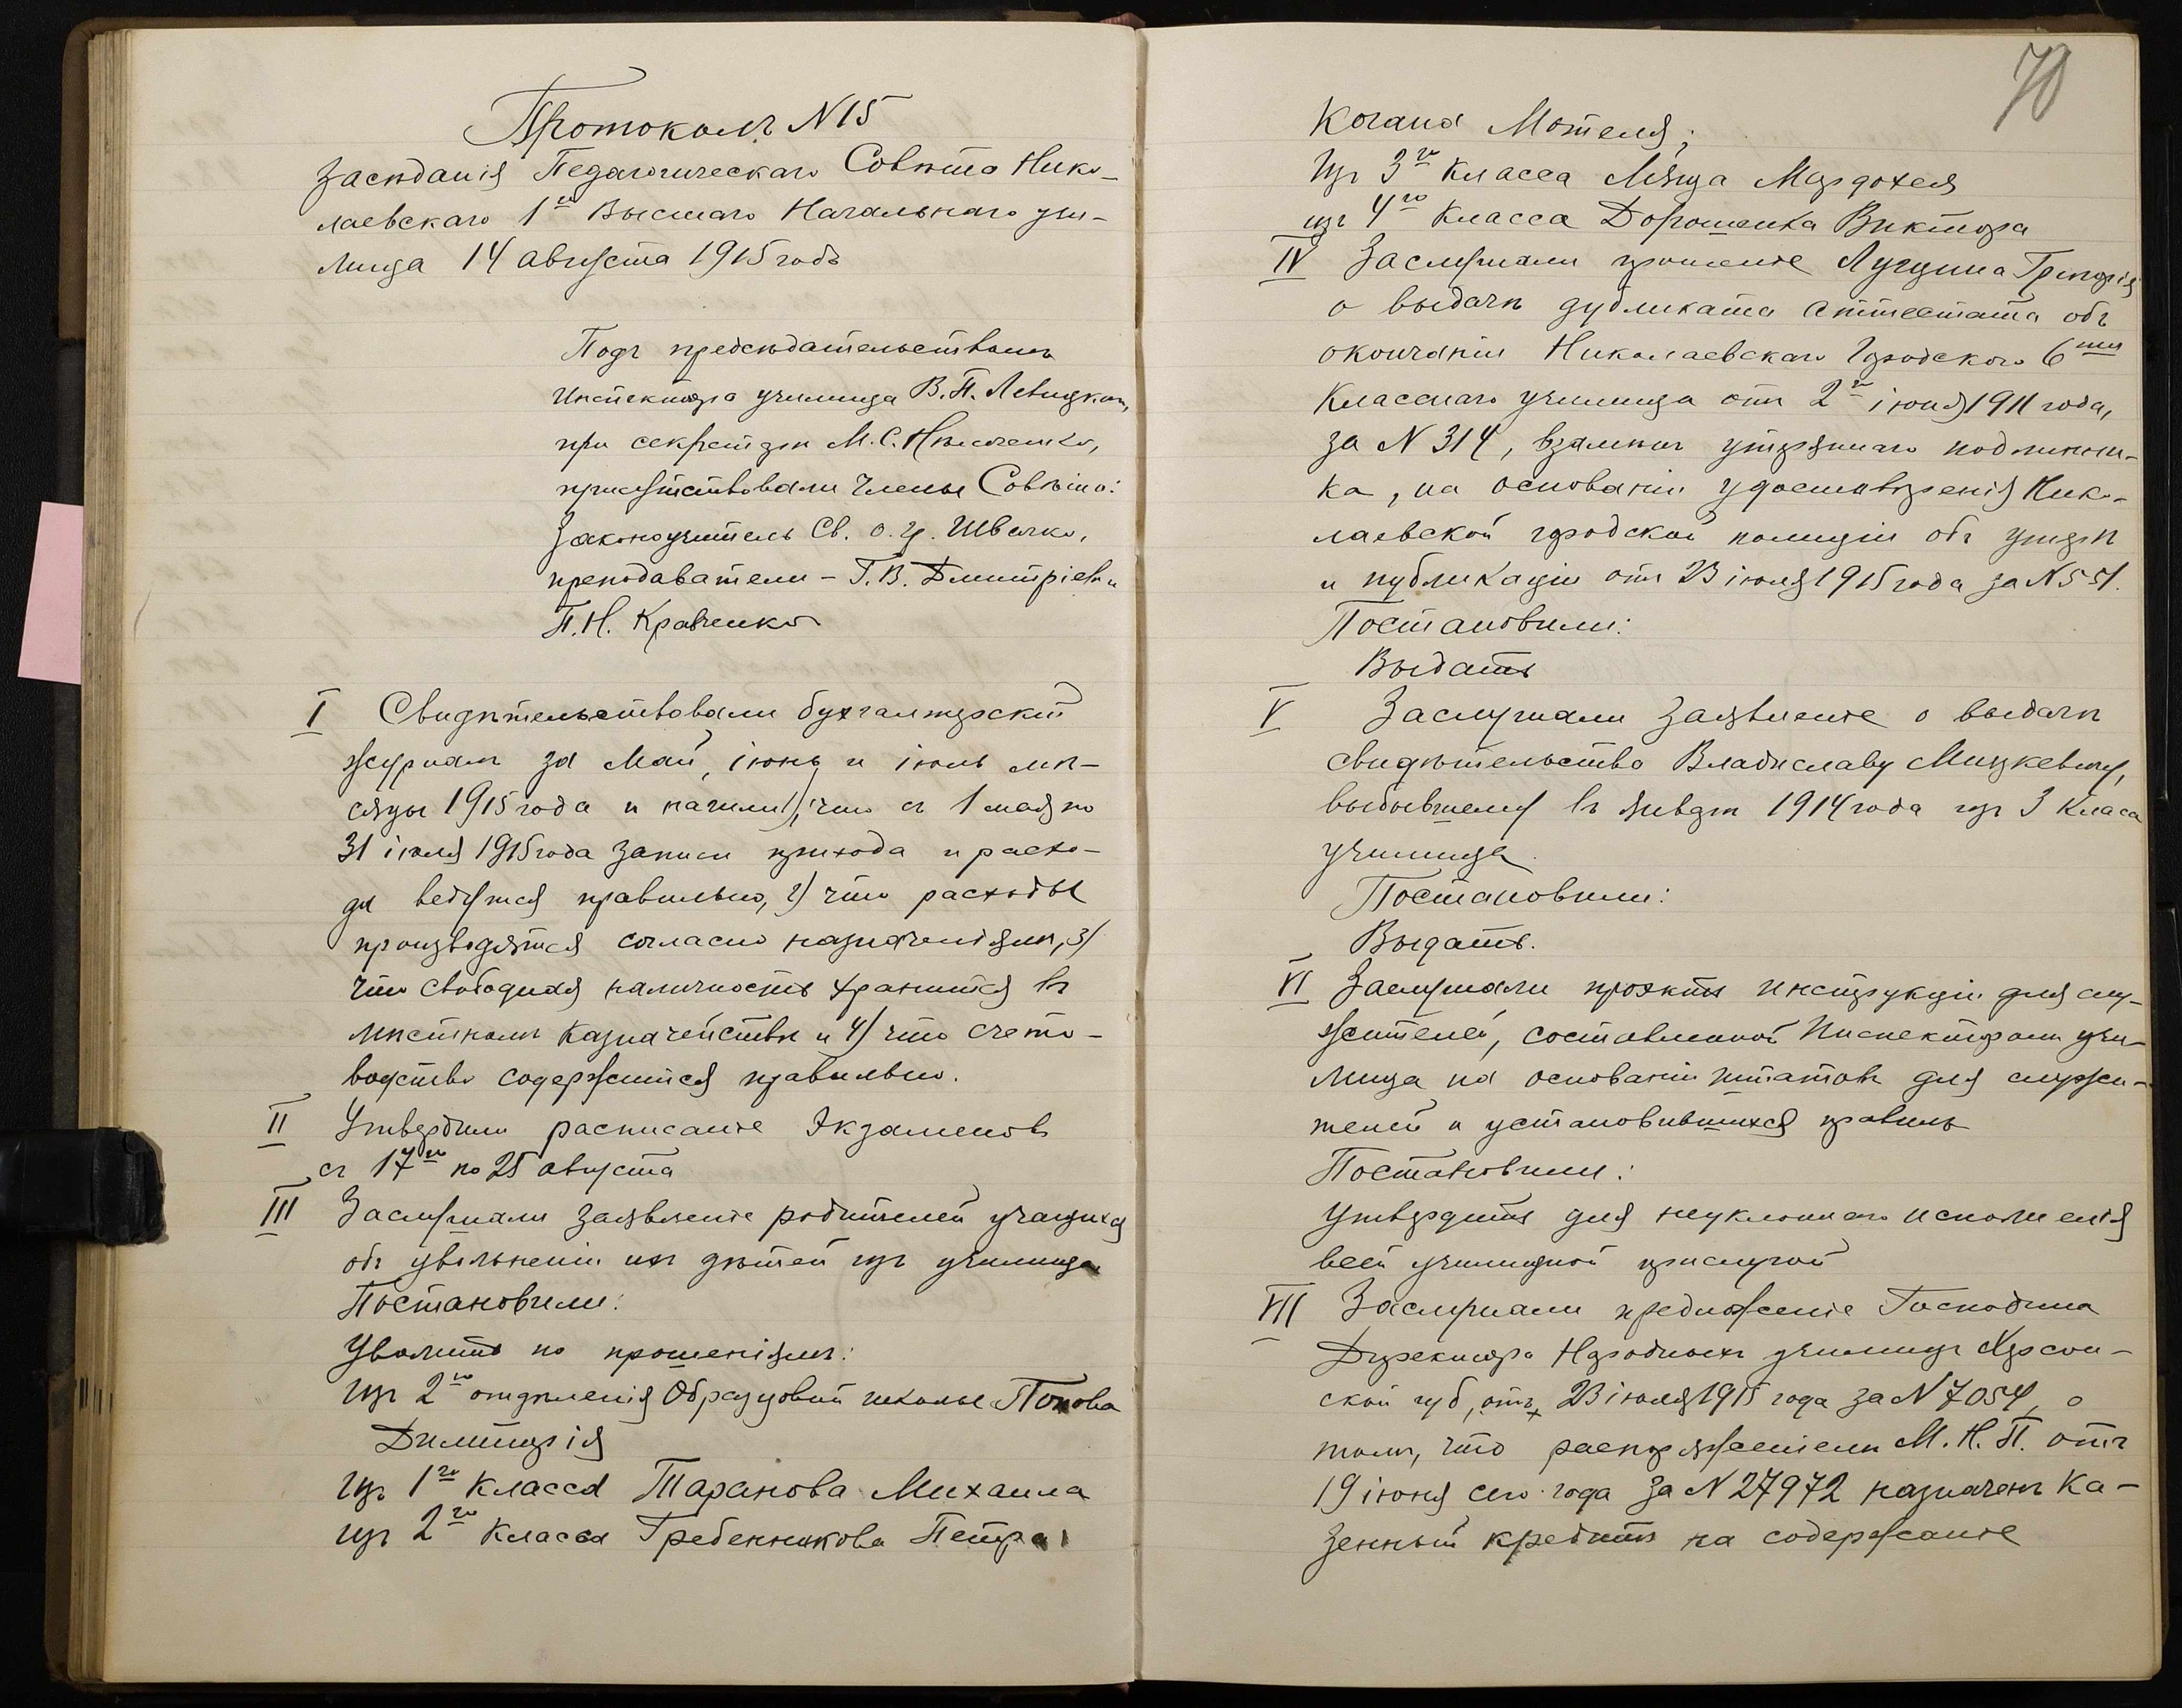 Протоколъ N 15
Засѣданія Педагогическаго Совѣта Нико-
лаевскаго 1го Высшаго Начальнаго учи-
лища 14 августа 1915 года
Подъ предсѣдательствомъ
Инспектора училища В. П. Левицкаго,
при секретарѣ М. С.
присутствовали Члены Совѣта:
Законоучитель Св. о. Гр. Швачко,
преподаватели – Г. В. Дмитріевъ и
П. Н. Кравченко
I Свидѣтельствовали бухгалтерскій
журналъ за Май, іюнь и іюль мѣ-
сяцы 1915 года и нашли 1) что съ 1 мая по
31 іюля 1915 года записи прихода и расхо-
да ведутся правильно, 2) что расходы
производятся согласно назначеніямъ, 3)
что свободная наличность хранится въ
мѣстномъ Казначействѣ и 4) что счето-
водство содержится правильно.
II Утвердили расписаніе Экзаменовъ
съ 17го по 25 августа
III Заслушали заявленіе родителей учащихся
объ увольненіи ихъ дѣтей изъ училища
Постановили:
Уволить по прошеніямъ:
Изъ 2го отдѣленія Образцовой школы Попова
Димитрія
Изъ 1го Класса Таранова Михаила
изъ 2го Класса Гребенникова Петра
70
Когана Мотеля;
Изъ 3го Класса Мардохея
изъ 4го Класса Дорошенка Виктора
IV Заслушали прошеніе Лугцина Григорія
о выдачѣ дубликата Аттестата объ
окончаніи Николаевскаго Городского 6ти
Класснаго училища отъ 2го іюня 1911 года,
за N 314, взамѣнъ утеряннаго подлинни-
ка, на основаніи удостовѣренія Нико-
лаевской городской полиціи объ утерѣ
и публикаціи отъ 23 іюля 1915 года за N 551.
Постановили:
Выдать
V Заслушали заявленіе о выдачѣ
свидѣтельства Владиславу Мицкевичу,
выбывшему въ январѣ 1914 года изъ 3 Класса
училища.
Постановили:
Выдать.
VI Заслушали проэктъ инструкціи для слу-
жителей, составленной Инспекторомъ учи-
лища на основаніи штатовъ для служи-
телей и установившихся правилъ
Постановили:
Утвердить для неуклоннаго исполненія
всей училищной прислугой
VII Заслушали предложеніе Господина
Директора Народныхъ училищъ Херсон-
ской губ, отъ 23 іюля 1915 года за N 7054, о
томъ, что распоряженіемъ М. Н. П. отъ
19 іюня сего года за N 27972 назначенъ Ка-
зенный кредитъ на содержаніе